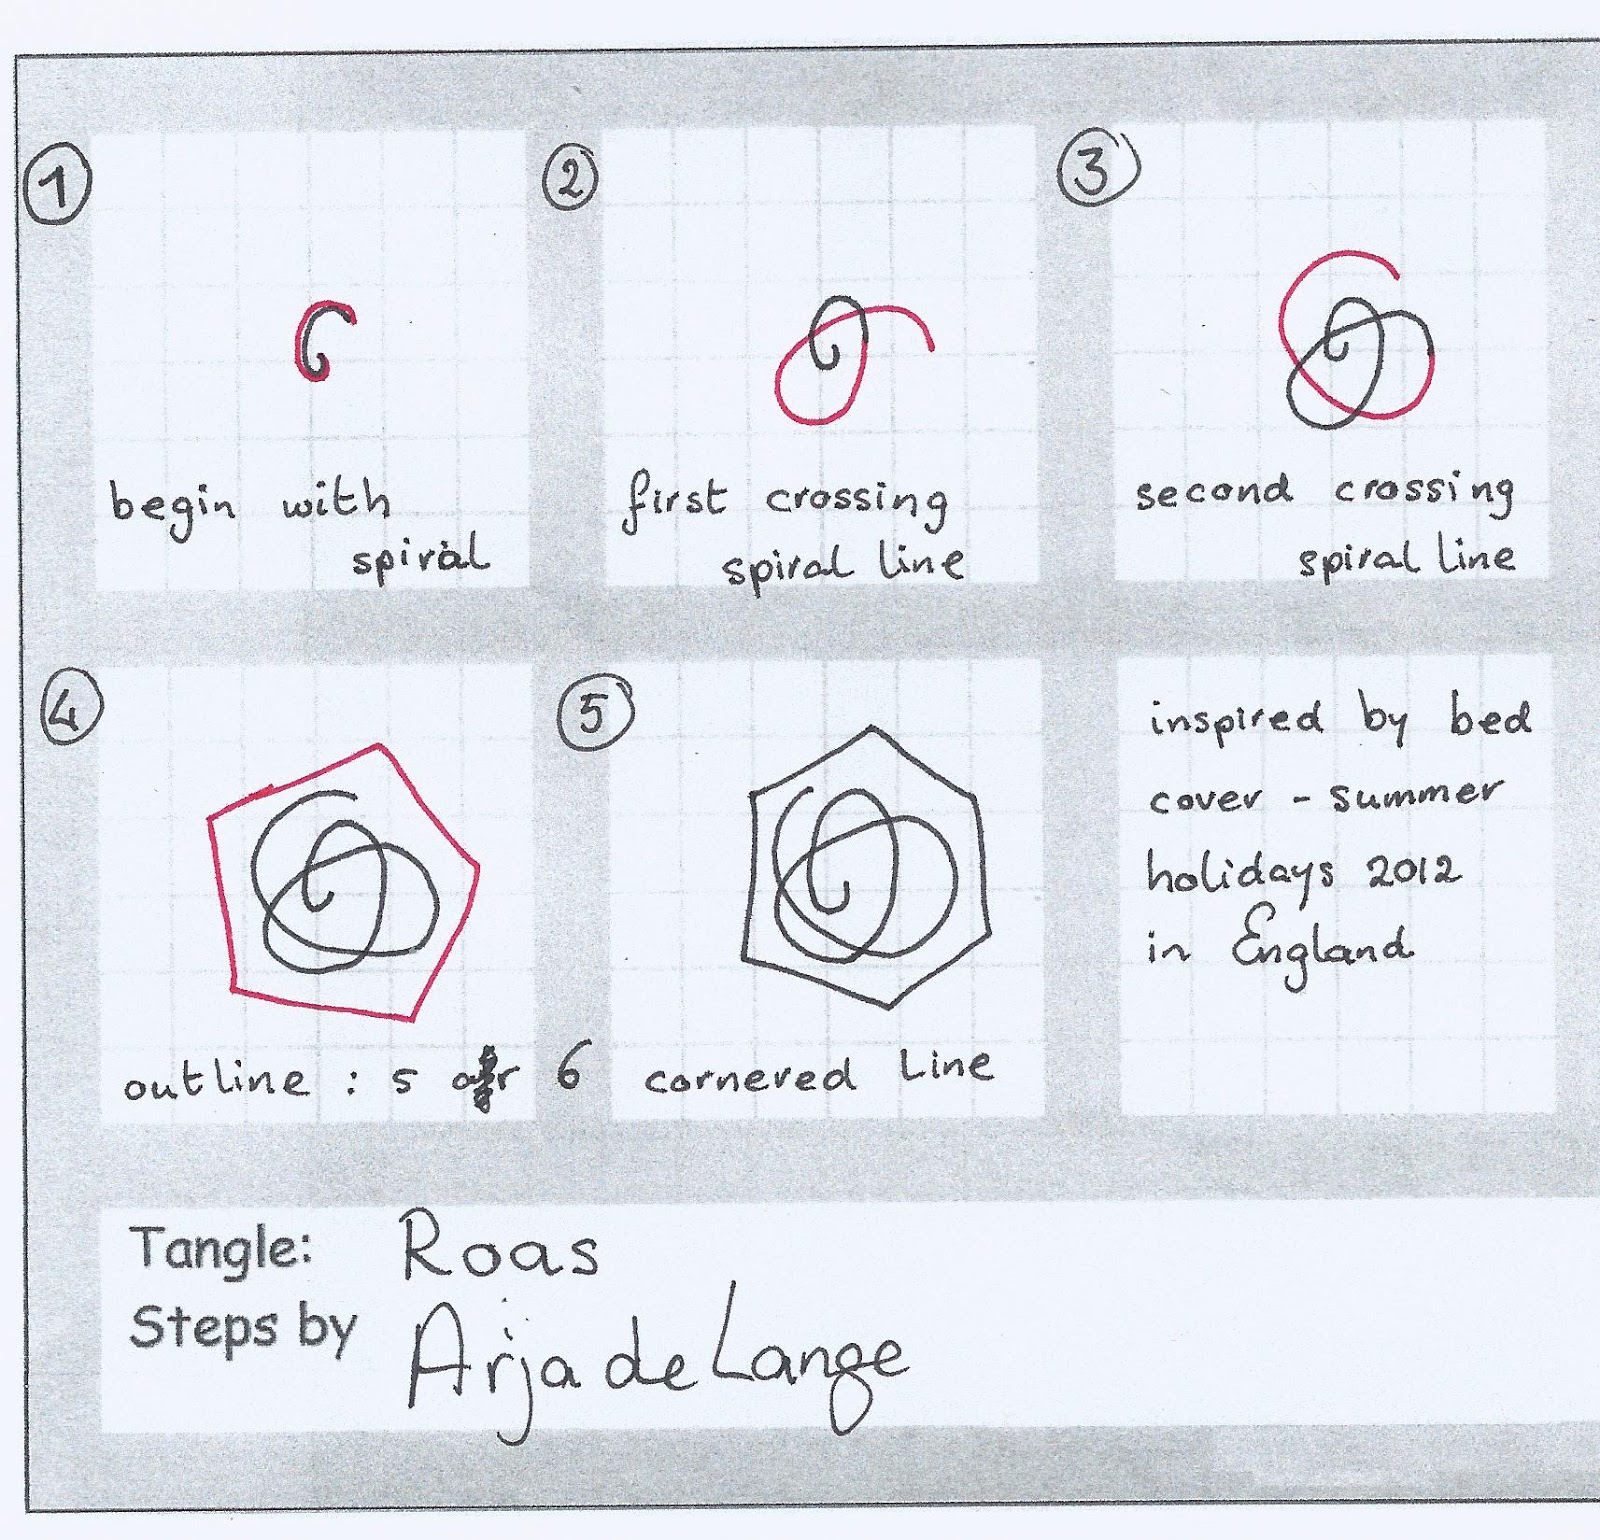 1
begin with
spiral
2
first crossing
spiral line
3
second crossing
spiral line
4
5
outline : 5 or 6 cornered Line
inspired by bed
cover - summer
holidays 2012
in England
Tangle: Roas
Steps by Arja de Lange